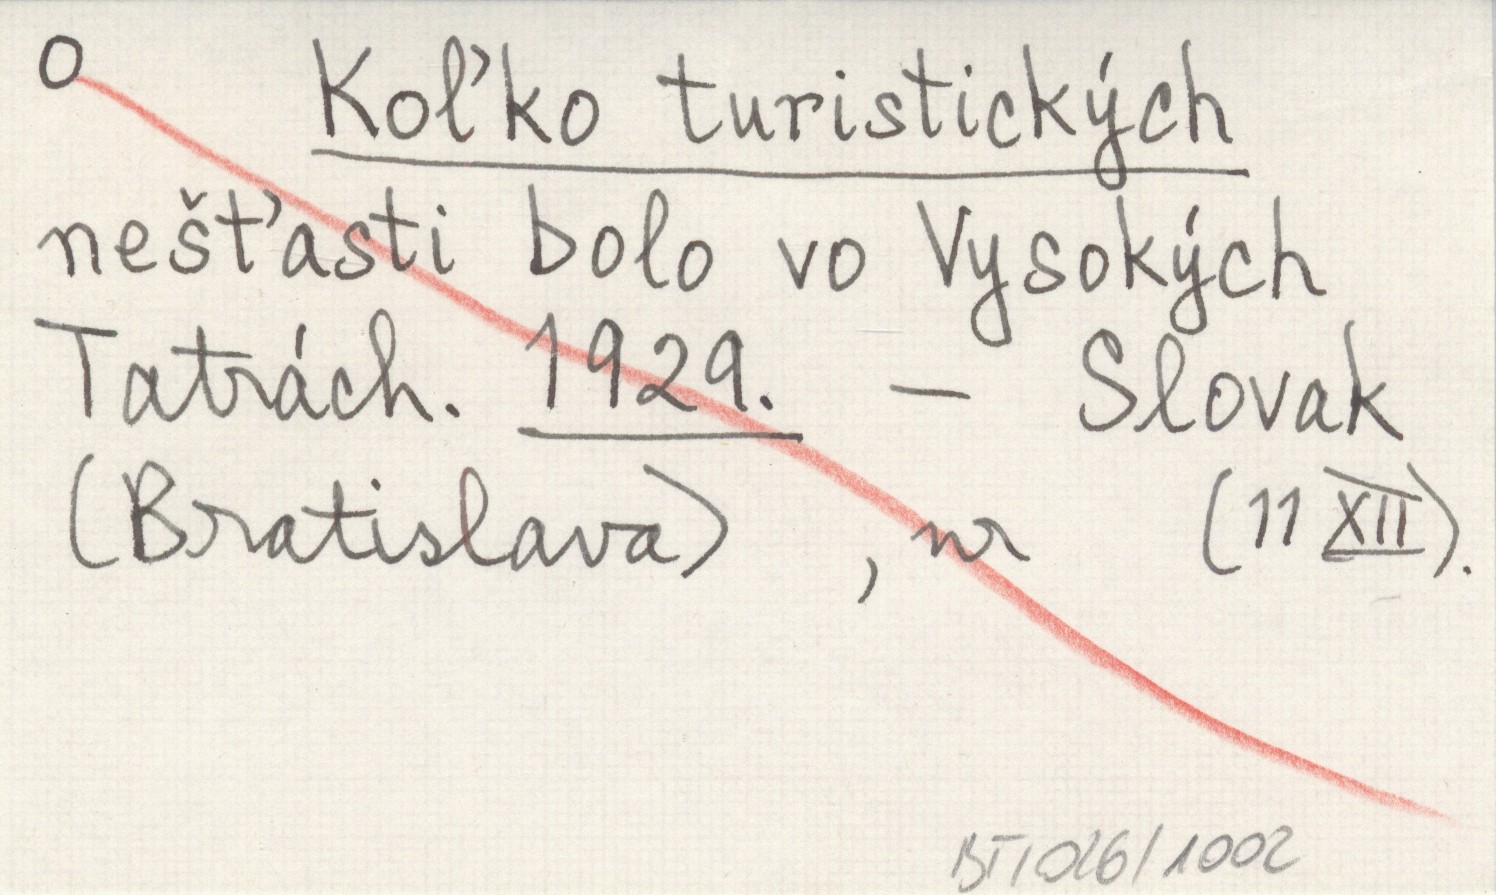 O Koľko turistických
nešťasti bolo vo Vysokých
Tatrách. 1929. – Slovak
(Bratislava) , nr (11 XII).
BT/026/1002